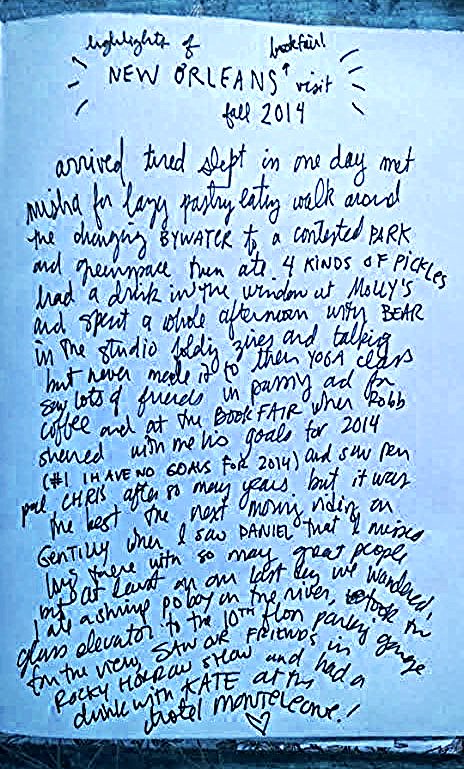 highlights of bookfair!
NEW ORLEANS↑ visit
fall 2014
arrived tired slept in one day met
misha for lazy pastry eating walk around
the changing BYWATER to a contested PARK
and greenspace then ate 4 KINDS OF PICKLES
had a drink in the window at MOLLY'S
and spent a whole afternoon with BEAR
in the studio folding zines and talking
but never made it to their YOGA class
saw lots of friends in passing and for
coffee and at the BOOK FAIR when Robb
shared with me his goals for 2014
(#1 I HAVE NO GOALS FOR 2014) and saw pen
pal CHRIS after so many years. but it was
the best the next morning riding on
GENTILLY when I saw DANIEL that I missed
living there with so many great people
but at least on our last day we wandered,
I ate a shrimp po boy on the river, took the
glass elevator to the 10TH floor parking garage
for the view, SAW OUR FRIENDS in
ROCKY HORROR SHOW and had a
drink with KATE at the
hotel MONTELEONE!
♡